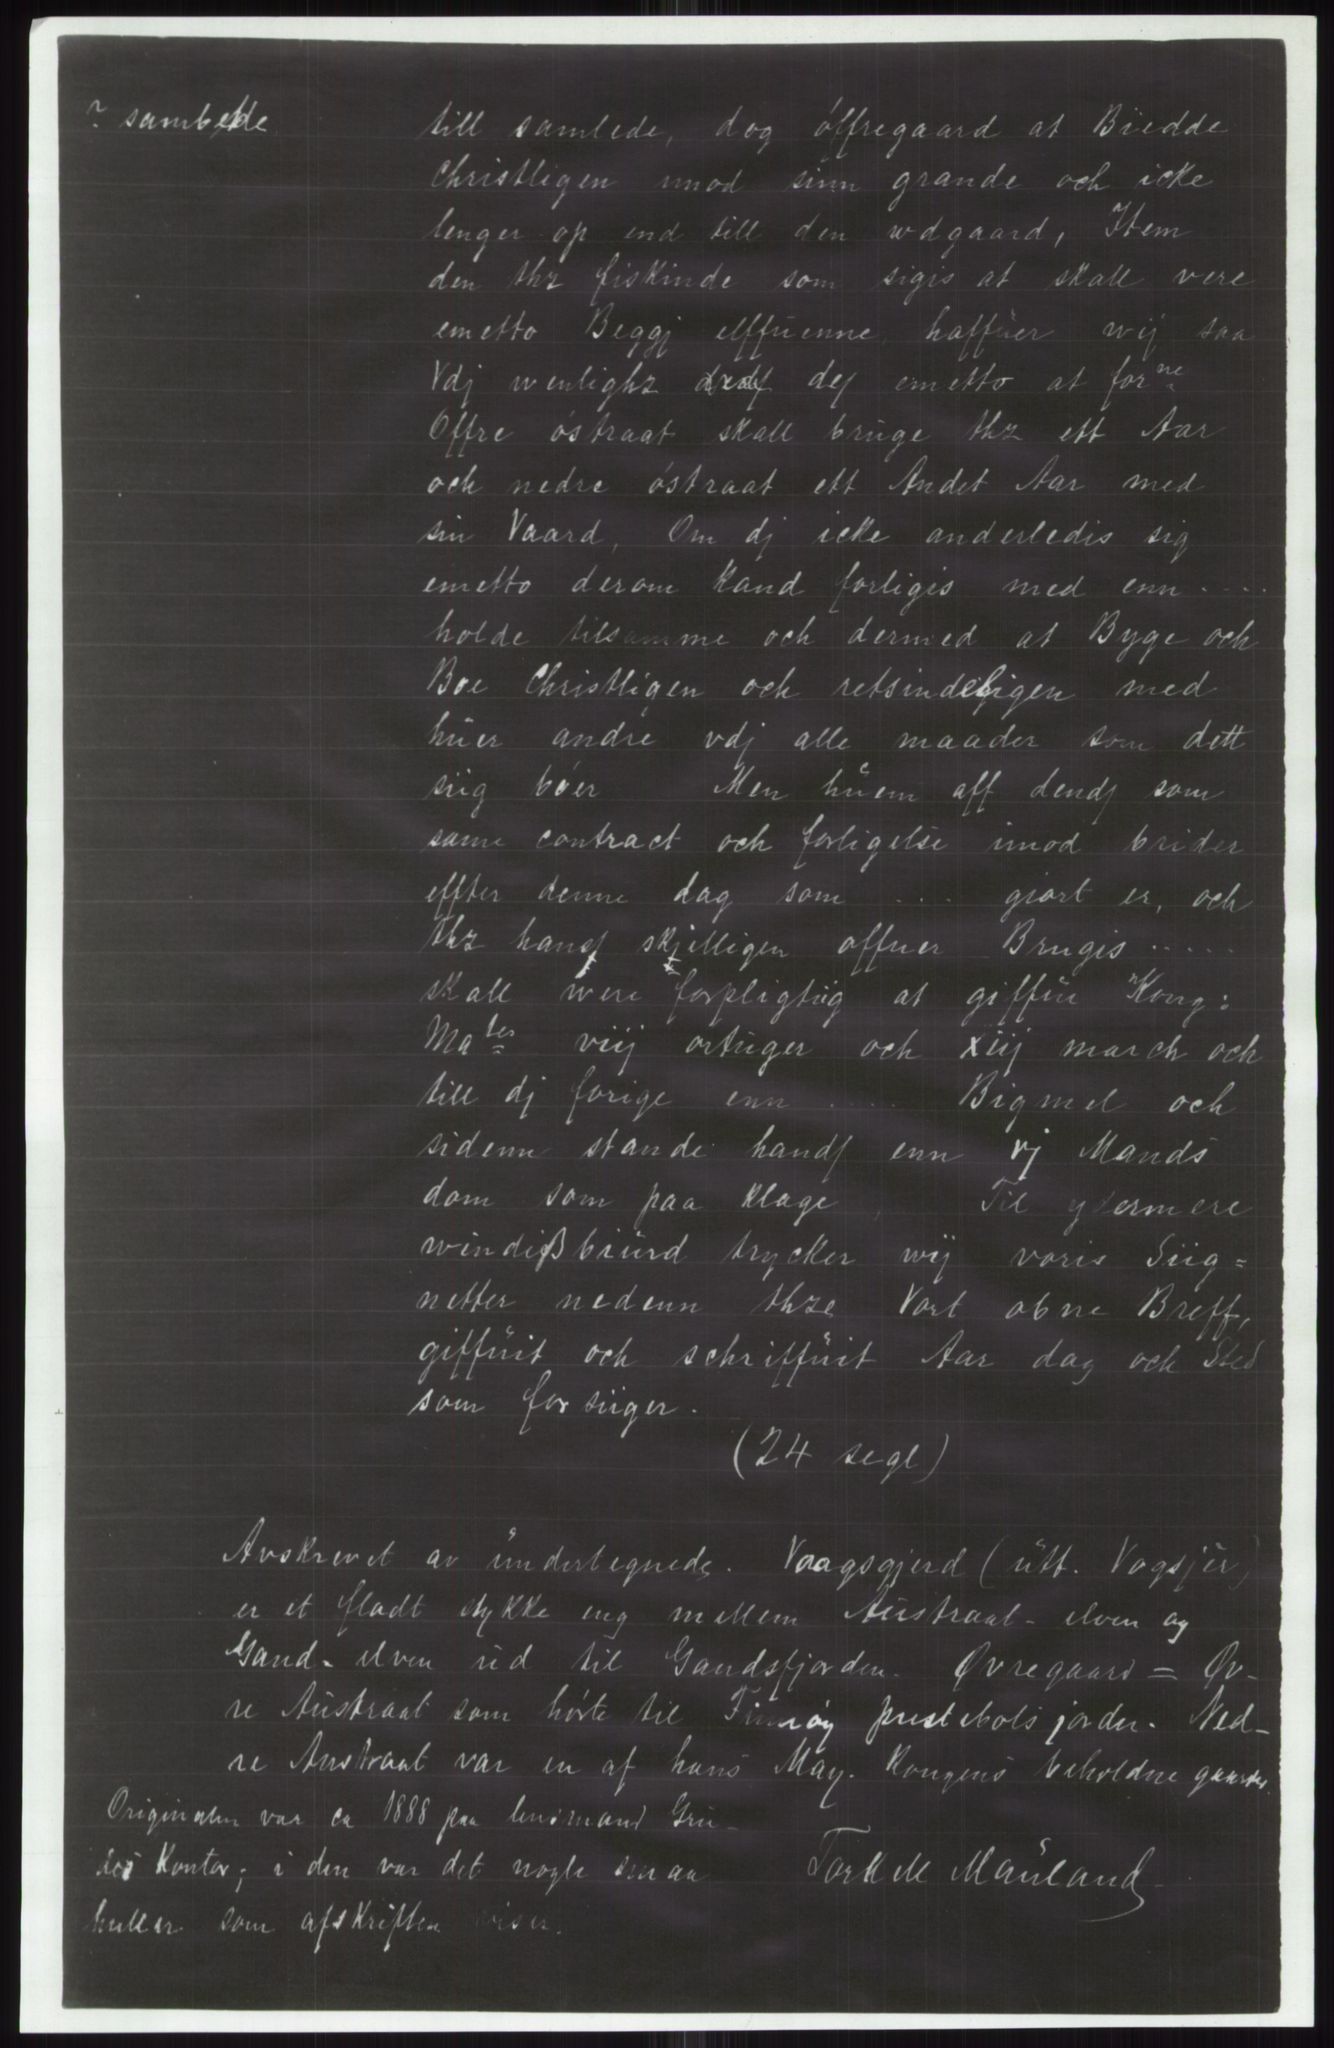 ? sambette
till samlede, dog öffregaard at Biedde
Christligen imod sinn grande och icke
lenger op end till den wdgaard, Item
den thz fiskinde som sigis at skall vere
emetto Beggj elffuenne, haffuer wij saa
Vdj wenlighz def emetto at for ne
Offre östraat skall bruge thz ett Aar
och nedre östraat ett Andet Aar med
sin Vaard, Om dj icke anderledis sig
emetto derom Kand forligis med enn ....
holde tilsamme och dermed at Byge och
Boe Christligen och retsindeligen med
huer andre vdj alle maader som dett
siig böer Men huem aff dendf som
same contract och forligelse imod brider
effter denne dag som .... giort er, och
thz handf skjelligen offuer Brugis .....
skall were forpligtiig at giffue Kong:
Ma tes viij ortuger och xiij march och
till dj forige enn .... Bigmel och
sidenn stande handf enn vj Mands
dom som paa klage, Til ydermere
windißbiurd trycker wij voris Siig=
netter nedenn thze Vort obne Breff,
giffuit och schriffuit Aar dag och Sted
som forsiiger.
(24 segl)
Avskrevet av undertegnede. Vaagsgjerd (utt. Vogsjer)
er et fladt stykke eng mellem Austraat-elven og
Gand-elven ud til Gandsfjorden. Øvregaard = Øv-
re Austraat som hörte til Finnöy prestebolsjorder. Ned-
re Austraat var en af hans May. Kongens beholdne gaarder.
Originalen var ca 1888 paa lensmand Gru-
des Kontor; i den var det nogle smaa
huller som afskriften viser.
Torkell Mauland